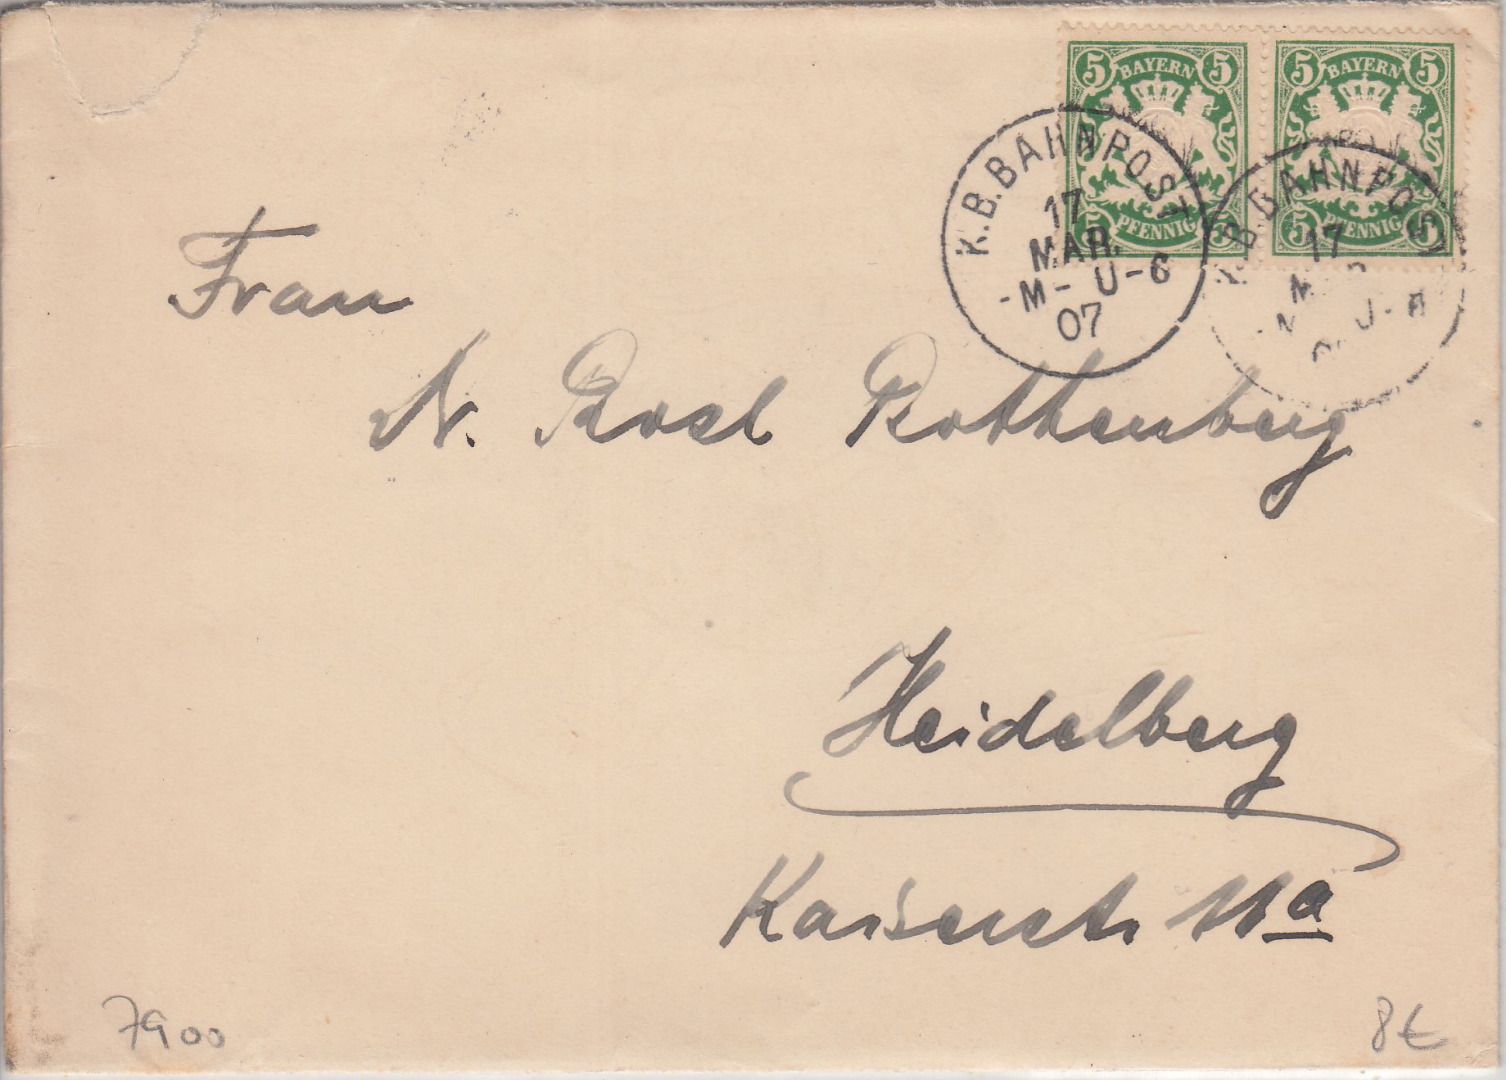 5 BAYERN 5
5 PFENNIG 5
5 BAYERN 5
5 PFENNIG 5
K.B.BAHNPOST
17
MAR.
-M- U-6
07
K.B.BAHNPOST
17
Frau
N. Rosl Rothenberg
Heidelberg
Kaiserstr 11a
7900
8€